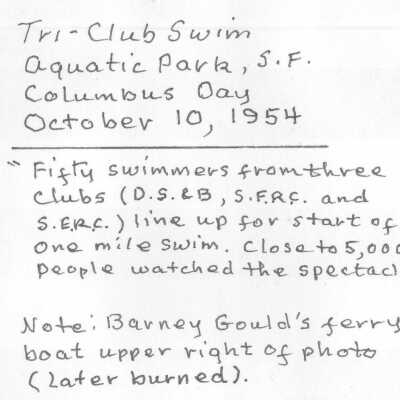 Tri-Club Swim
Aquatic Park, S.F.
Columbus Day
October 10, 1954
"Fifty swimmers from three
Clubs (D.S.&B, S.F.R.C. and
S.E.R.C.) line up for start of
one mile swim. Close to 5,000
people watched the spectacl
Note: Barney Gould's ferry
boat upper right of photo
(later burned).